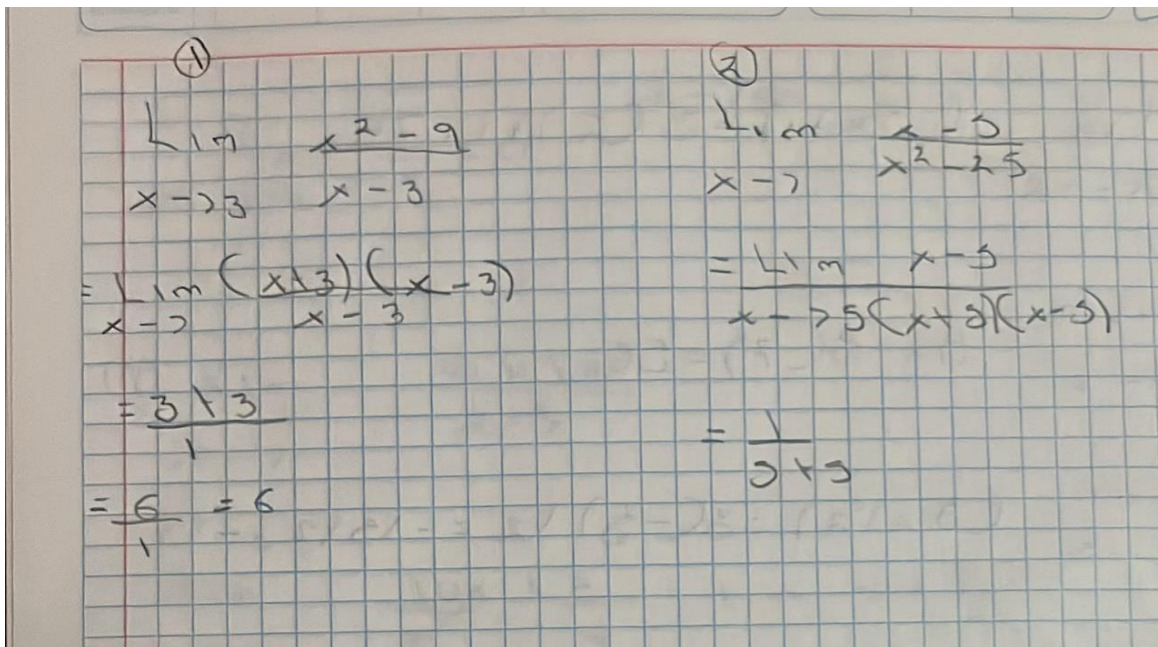 ①
Lim x² - 9
x -> 3 x - 3
= Lim (x+3)(x - 3)
x -> x - 3
= 3 + 3
1
= 6 = 6
1
②
Lim x - 5
x -> x² - 25
= Lim x - 5
x -> 5 (x+5)(x-5)
= 1
5 + 5